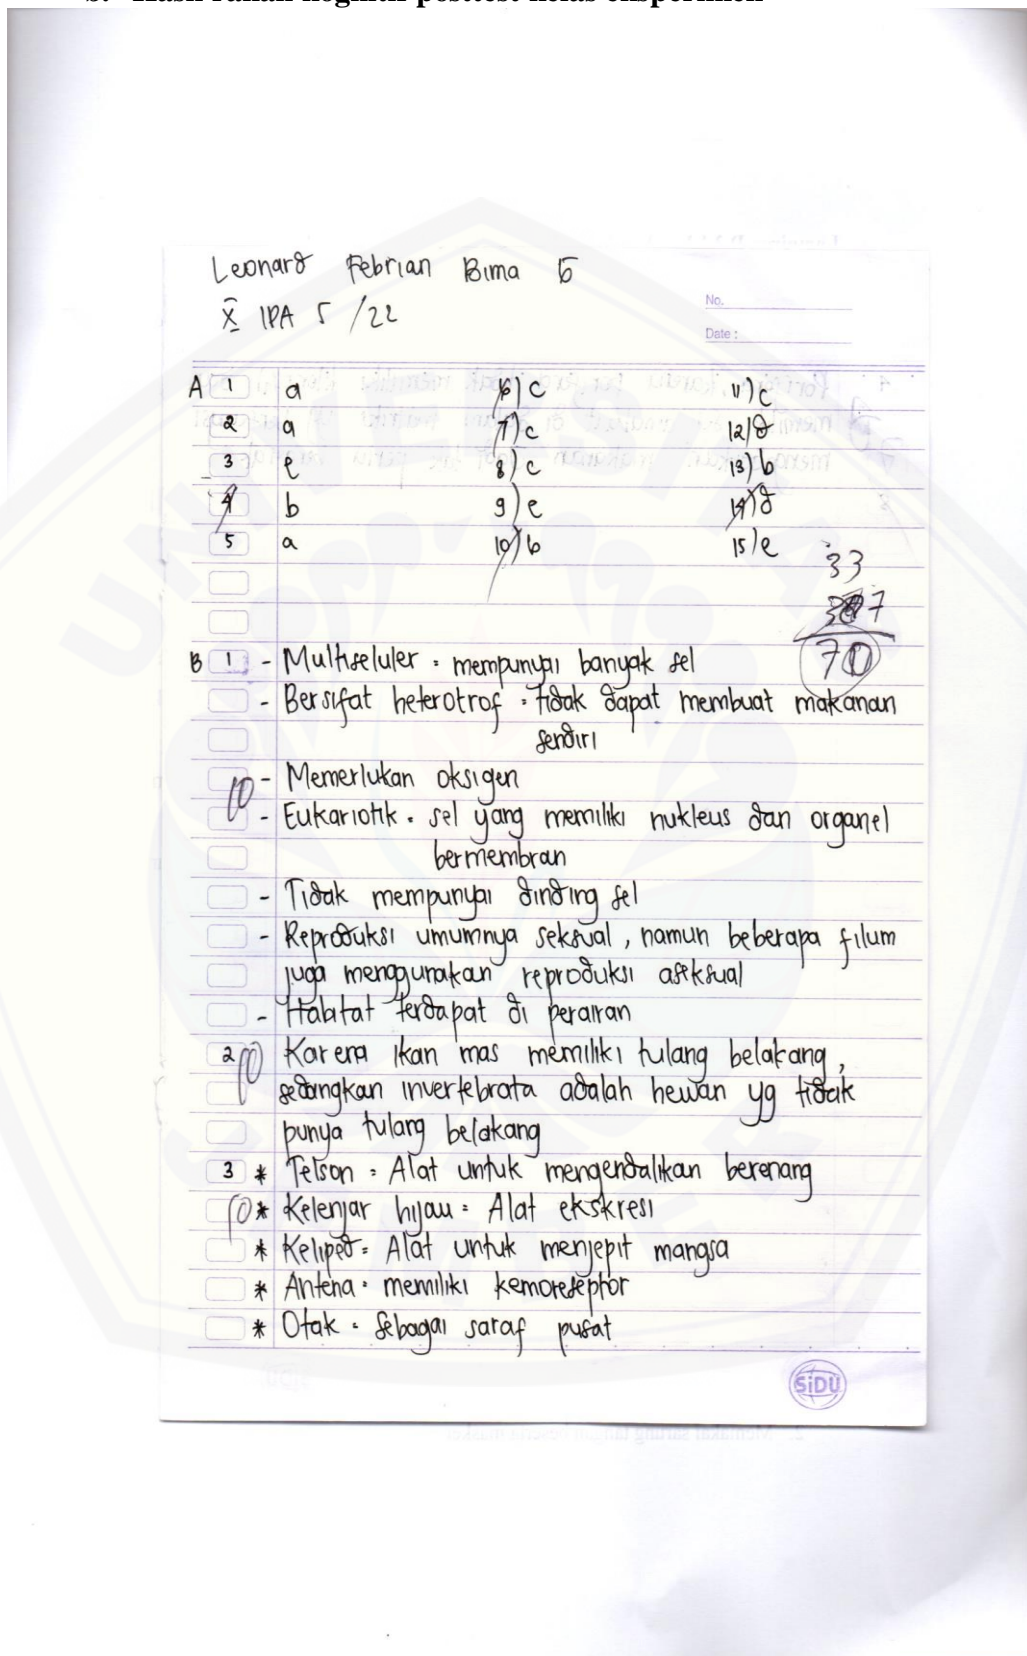 Leonard Febrian Bima G
X IPA 5 /22
No.
Date :
A 1 a 6) c 11) c
2 a 7) c 12) d
3 e 8) c 13) b
4 b 9) e 14) d
5 a 10) b 15) e
33
7
70
B 1 - Multiseluler = mempunyai banyak sel
- Bersifat heterotrof = tidak dapat membuat makanan
sendiri
10 - Memerlukan oksigen
- Eukariotik = sel yang memiliki nukleus dan organel
bermembran
- Tidak mempunyai dinding sel
- Reproduksi umumnya seksual, namun beberapa filum
juga menggunakan reproduksi aseksual
- Habitat terdapat di perairan
2 10 Karena ikan mas memiliki tulang belakang,
sedangkan invertebrata adalah hewan yg tidak
punya tulang belakang
3 * Telson = Alat untuk mengendalikan berenang
10 * Kelenjar hijau = Alat ekskresi
* Keliped = Alat untuk menjepit mangsa
* Antena = memiliki kemoreseptor
* Otak = sebagai saraf pusat
SiDU